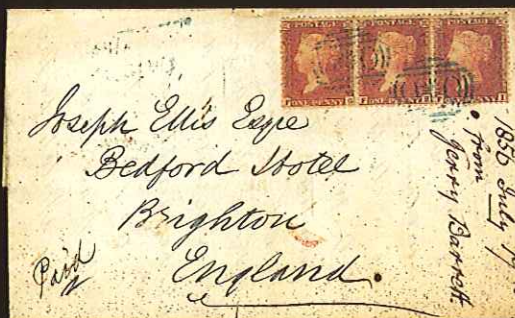 POSTAGE POSTAGE POSTAGE
ONE PENNY ONE PENNY ONE PENNY
Joseph Ellis Esqre
Bedford Hotel
Brighton
England.
Paid
1856 July
from
Jerry Barrett